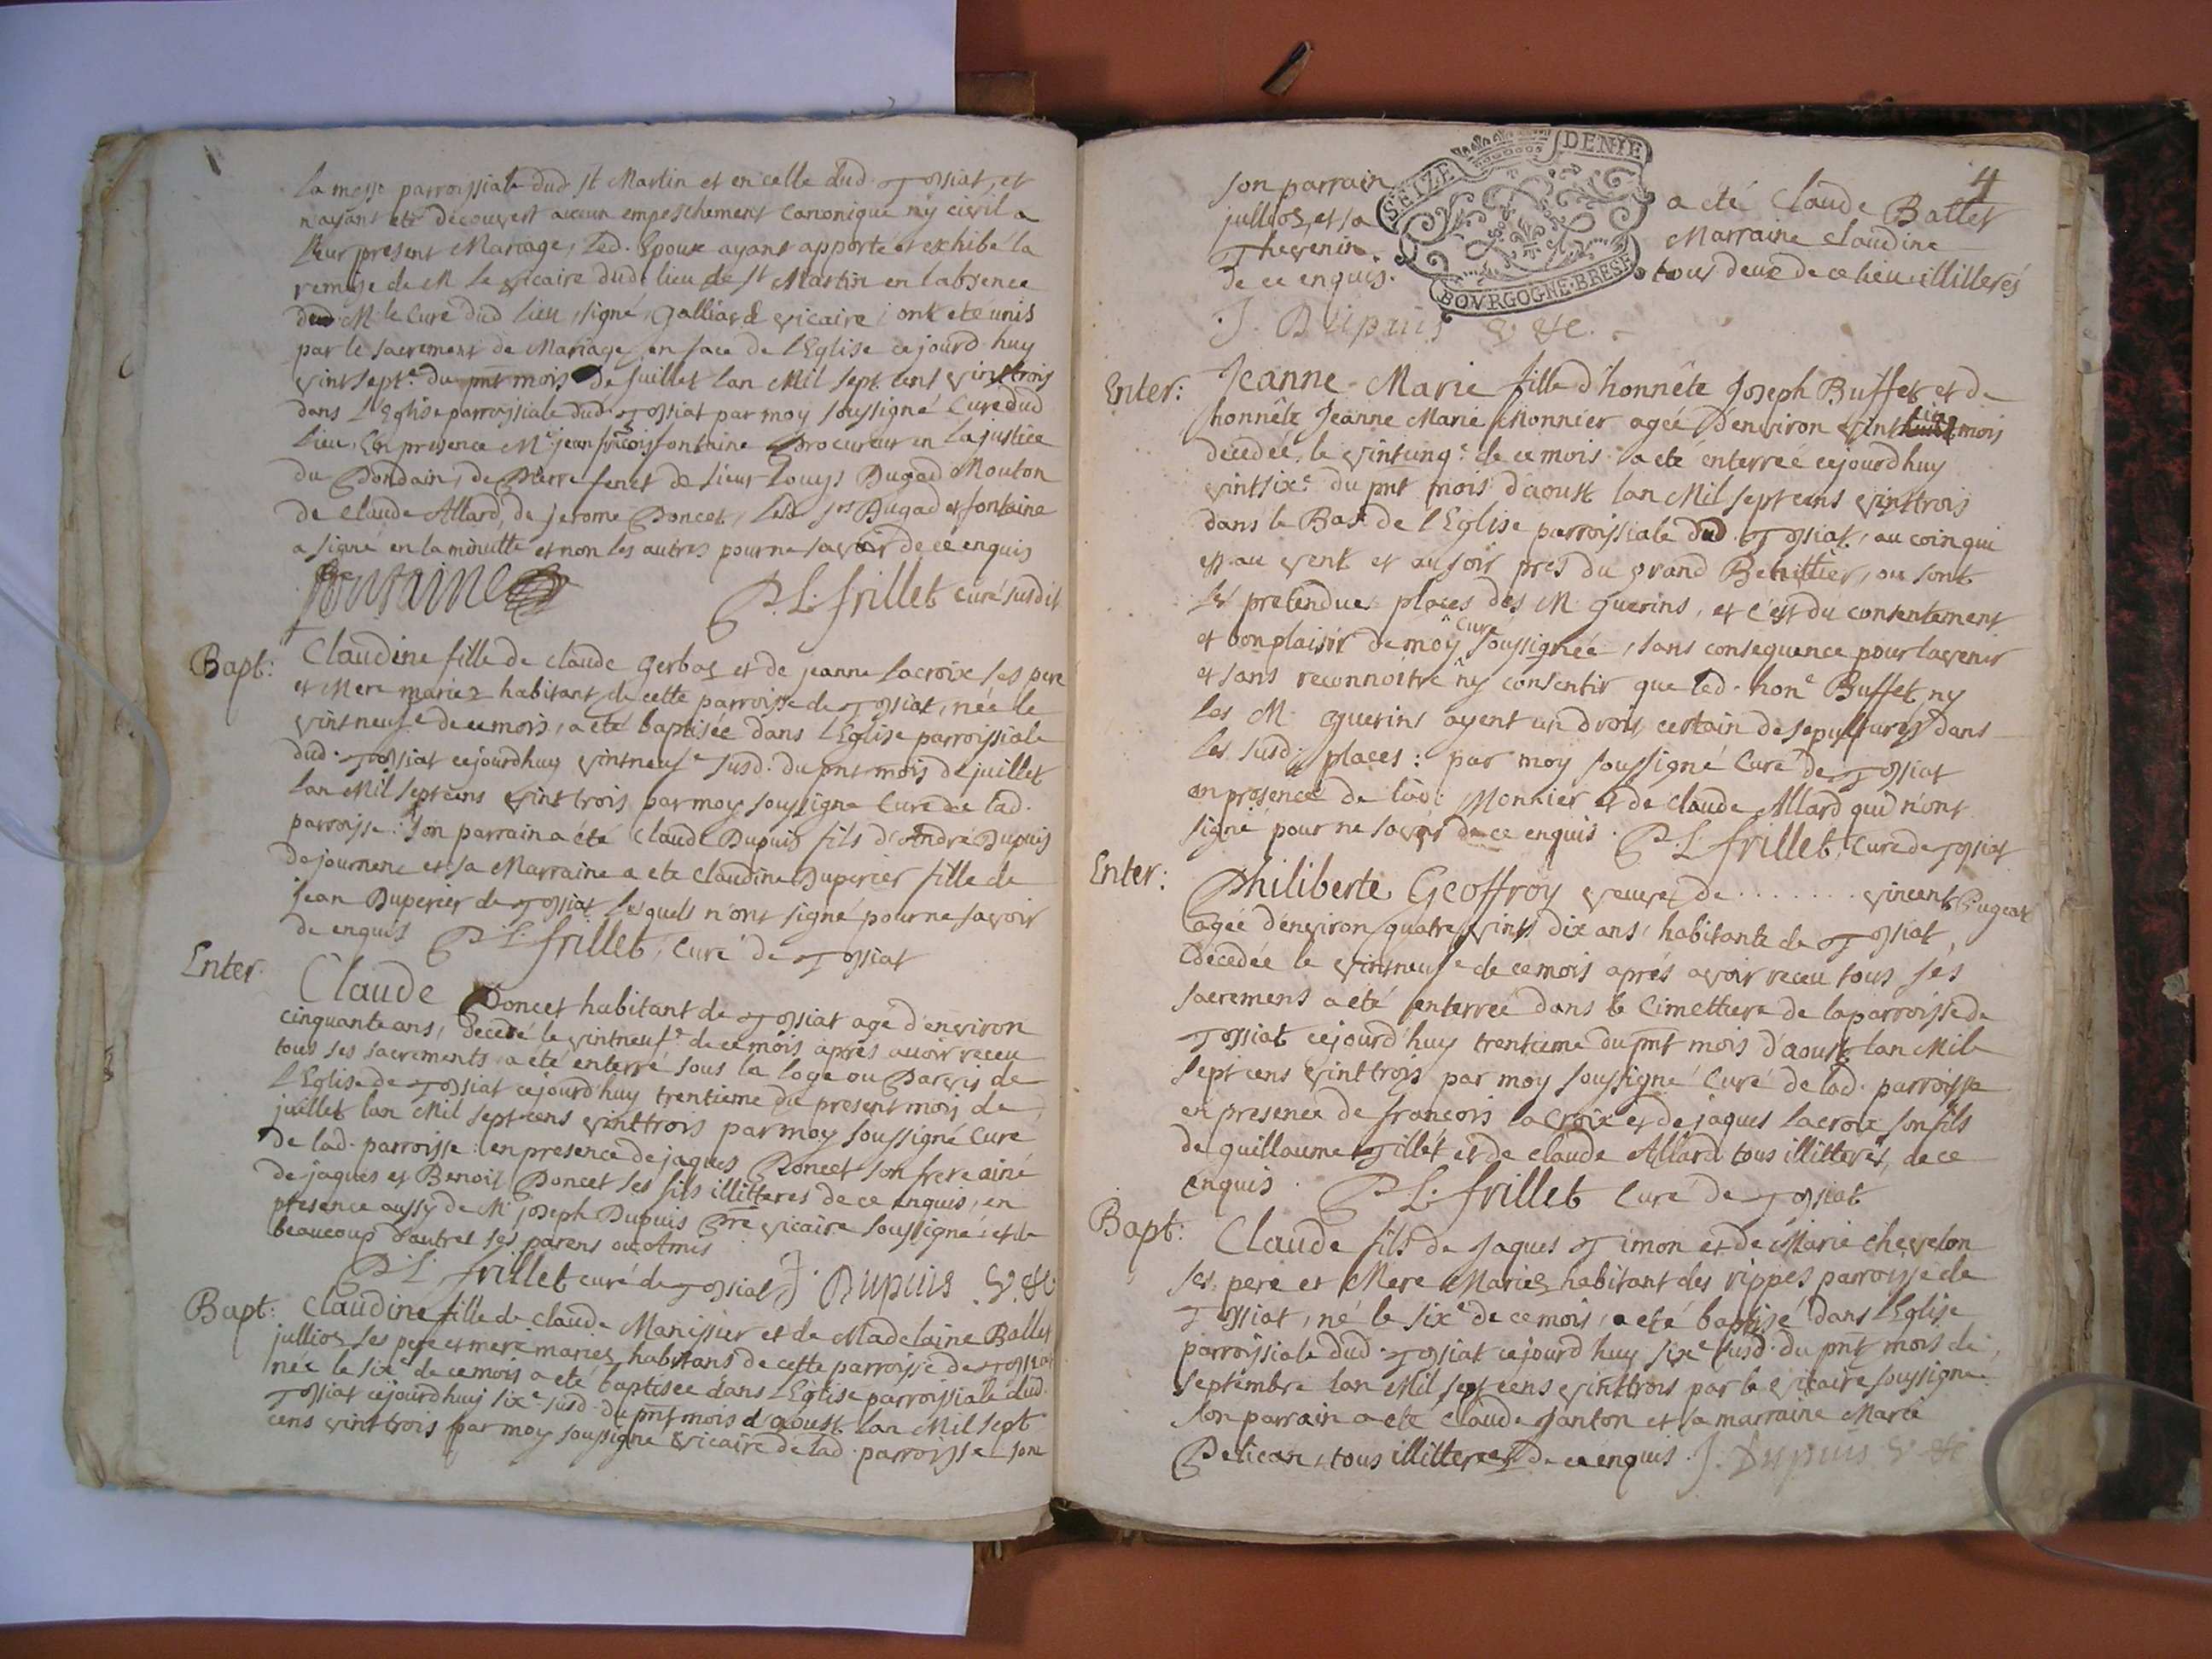 la messe parroissiale dud st Martin et en celle dud. Tossiat, et
n'ayant eté decouvert aucun empeschement canonique ny civil a
leur present Mariage, led. Epoux ayant apporté et exhibé la
remise de M le vicaire dud lieu de st Martin en l'absence
dud. M. le Curé dud lieu, signé, Galliard vicaire, ont eté unis
par le sacrement de Mariage en face de l'Eglise ce jourd'huy
vint septe. du pnt mois de juillet lan Mil sept cent vint trois
dans l'Eglise parroissiale dud. Tossiat par moy soussigné Curé dud
lieu, En presence Me jean françois fontaine Procureur en la justice
du Dondain, de Pierre fenet de sieur Louys Dugad Mouton
de Claude Allard, de jerome Poncet, lesd srs Dugad et fontaine
a signé en la minutte et non les autres pour ne savoir de ce enquis
fontaine P. L. frillet curé susdit
Bapt: Claudine fille de claude Gerbaz et de jeanne lacroix ses pere
et Mere mariez habitant de cette parroisse de Tossiat, née le
vintneufe de ce mois, a eté baptisée dans l'Eglise parroissiale
dud. Tossiat cejourdhuy vintneufe susd. du pnt mois de juillet
lan Mil sept cens vint trois par moy soussigné Curé de lad.
parroisse: son parrain a été Claude Dupuis fils d'André Dupuis
de journenc et sa Marraine a ete claudine Duperier fille de
jean Duperier de Tossiat lesquels n'ont signé pour ne savoir
de enquis P. L. frillet, curé de Tossiat
Enter. Claude Poncet habitant de Tossiat agé d'environ
cinquante ans, decedé le vintneufe. de ce mois aprés avoir receu
tous ses sacrements a eté enterré sous la loge ou Parvis de
l'Eglise de Tossiat cejourd'huy trentieme du present mois de
juillet lan Mil sept cens vint trois par moy soussigné Curé
de lad. parroisse: en presence de jaques Poncet son frere ainé
de jaques et Benoit Poncet ses fils illitteres de ce enquis, en
presence aussy de Mr joseph Dupuis Pre vicaire soussigné, et de
beaucoup d'autres ses parens ou Amis
P. L. frillet curé de Tossiat J. Dupuis V. &c
Bapt: Claudine fille de Claude Manissier et de Madelaine Ballet
jullioz ses pere et mere mariez habitans de cette parroisse de Tossiat
née le sixe de ce mois a eté baptisée dans l'Eglise parroissiale dud.
Tossiat cejourdhuy sixe susd. du pnt mois d'aoust lan Mil sept
cens vint trois par moy soussigné vicaire de lad. parroisse son
4
SEIZE DENIE
BOVRGOGNE·BRESE
son parrain a eté Claude Ballet
jullioz, et sa Marraine Claudine
Thevenin, tous deux de ce lieu illitterés
de ce enquis.
J. Dupuis V &c.
Enter: Jeanne-Marie fille d'honnête Joseph Buffet et de
honnête Jeanne Marie Monnier agée d'environ vint mois
decedée le vintcinqe. de ce mois a eté enterreé cejourdhuy
vintsixe du pnt mois d'aoust lan Mil sept cens vint trois
dans le Bas de l'Eglise parroissiale dud. Tossiat, au coin qui
est au vent et au soir prés du grand Benittier, ou sont
les pretendues places des M. Guerins, et c'est du consentement
et bon plaisir de moy Curé soussignée, sans consequence pour lavenir
et sans reconnoître ny consentir que led. hone Buffet, ny
les M. Guerins ayent un droit certain de sepultures dans
les susd. places: par moy soussigné Curé de Tossiat
en presence de lad. Monnier et de claude Allard qui n'ont
signé pour ne savoir de ce enquis. P. L. frillet, curé de Tossiat
Enter: Philiberte Geoffroy veuve de ........ vincent Pugeat
agée d'environ quatre vint dix ans, habitante de Tossiat,
decedée le vintneufe de ce mois aprés avoir receu tous ses
sacremens a eté enterreé dans le Cimettiere de la parroisse de
Tossiat cejourd'huy trentieme du pnt mois d'aoust lan Mil
sept cens vint trois par moy soussigné Curé de lad. parroisse
en presence de francois la Croix et de jaques lacroix son fils
de guillaume Tillet et de claude Allard tous illitterés, de ce
enquis. P. L. frillet Curé de Tossiat
Bapt: Claude fils de Jaques Timon et de Marie chevelon
ses pere et Mere Mariez habitant des rippes parroisse de
Tossiat, né le sixe de ce mois, a eté baptisé dans l'Eglise
parroissiale dud. Tossiat cejourd'huy sixe susd. du pnt mois de
septembre lan Mil sept cens vint trois par le vicaire soussigné
son parrain a eté claude Janton et sa marraine Marie
Pelican, tous illitterez de ce enquis. J. Dupuis V &c